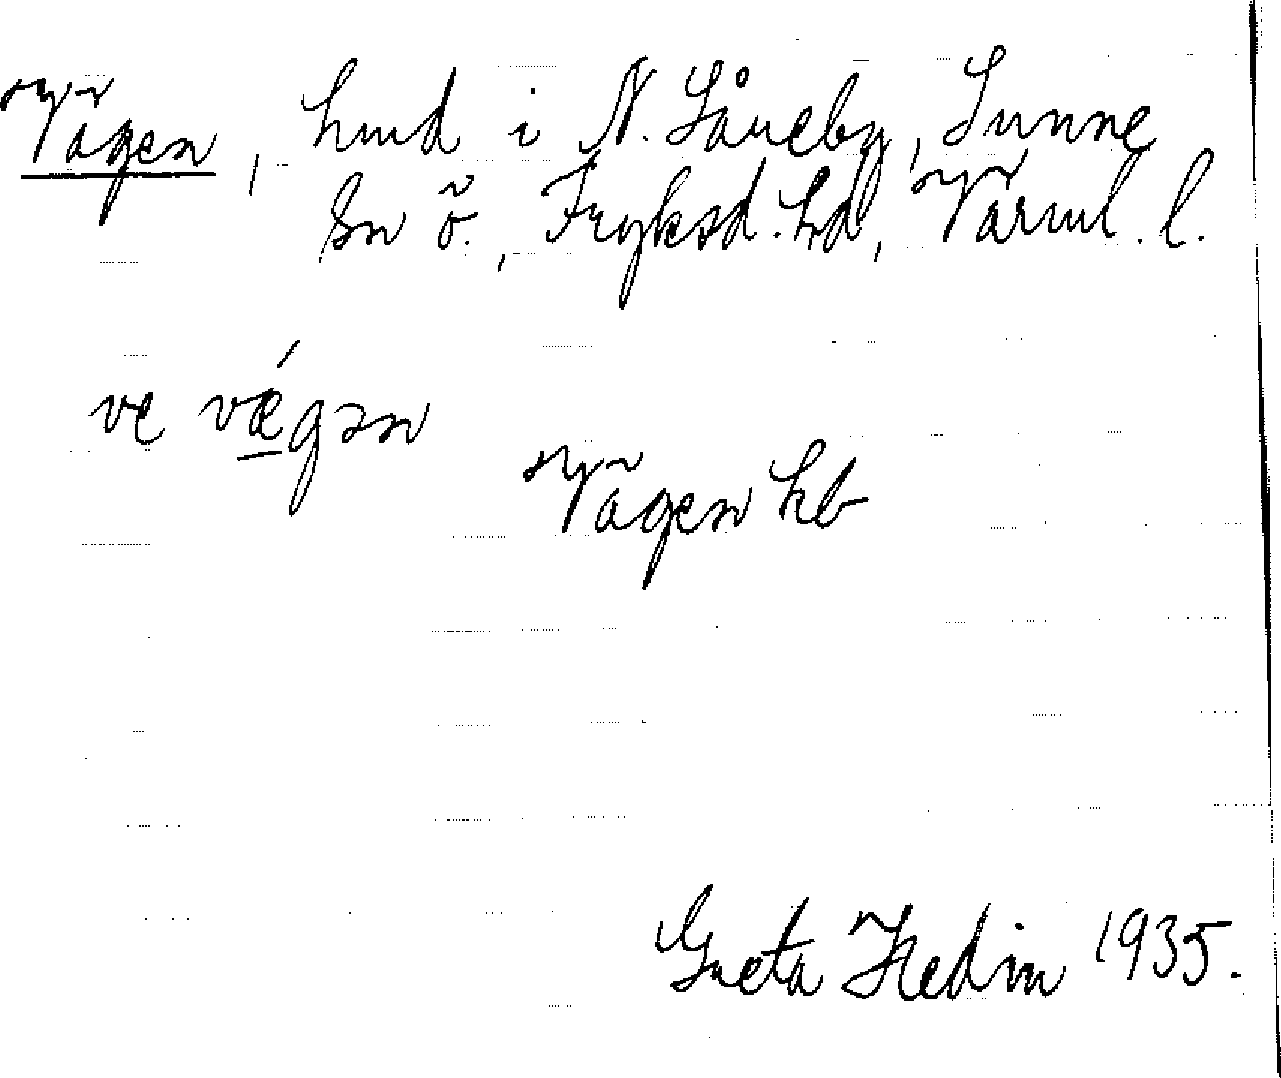 Vägen, hmd i N. Låneby, Sunne
sn ö., Fryksd. hd, Värml. l.
ve vǽgən
Vägen kb
Greta Hedin 1935.